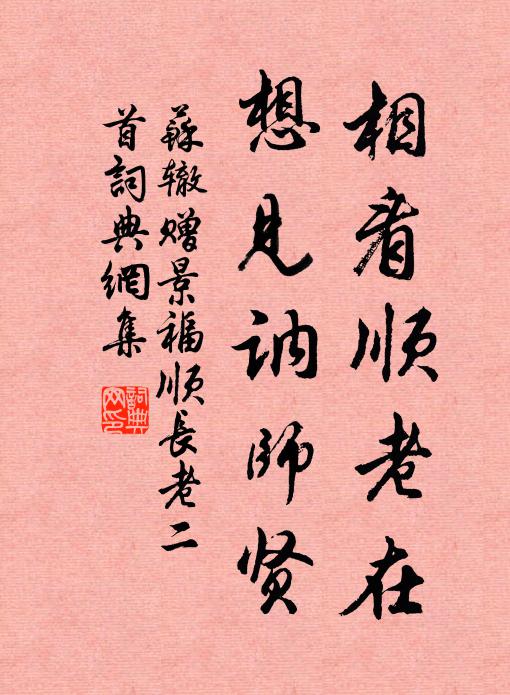 相看顺老在
想见讷师贤
蘇辙赠景福顺長老二
首詞典網集
詞典
网印